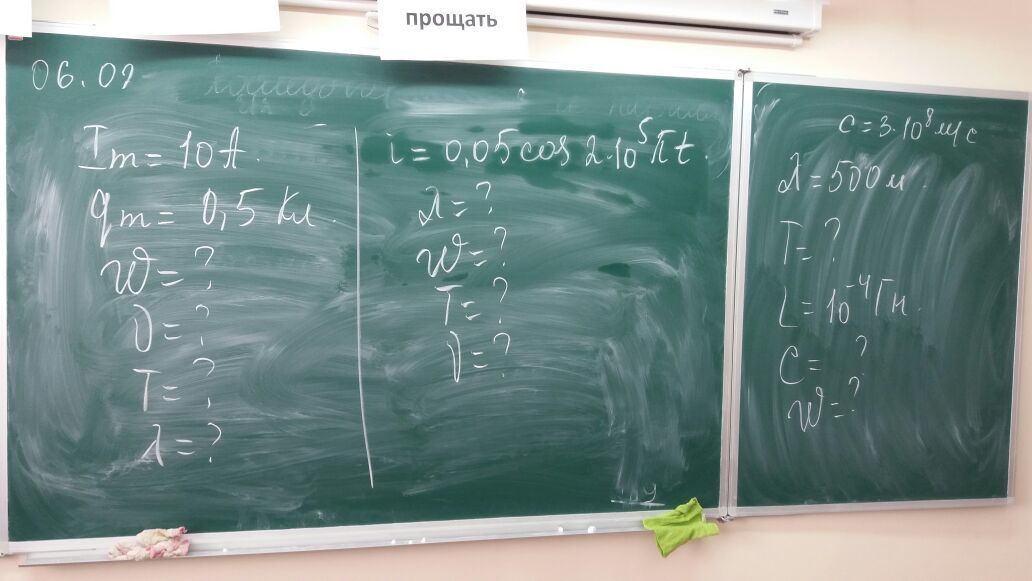 прощать
06.02
Im = 10 А.
qm = 0,5 Кл.
W = ?
ν = ?
T = ?
λ = ?
i = 0,05 cos 2·10⁵πt.
λ = ?
W = ?
T = ?
ν = ?
c = 3·10⁸ м/с
λ = 500 м.
T = ?
L = 10⁻⁴ Гн.
C = ?
W = ?